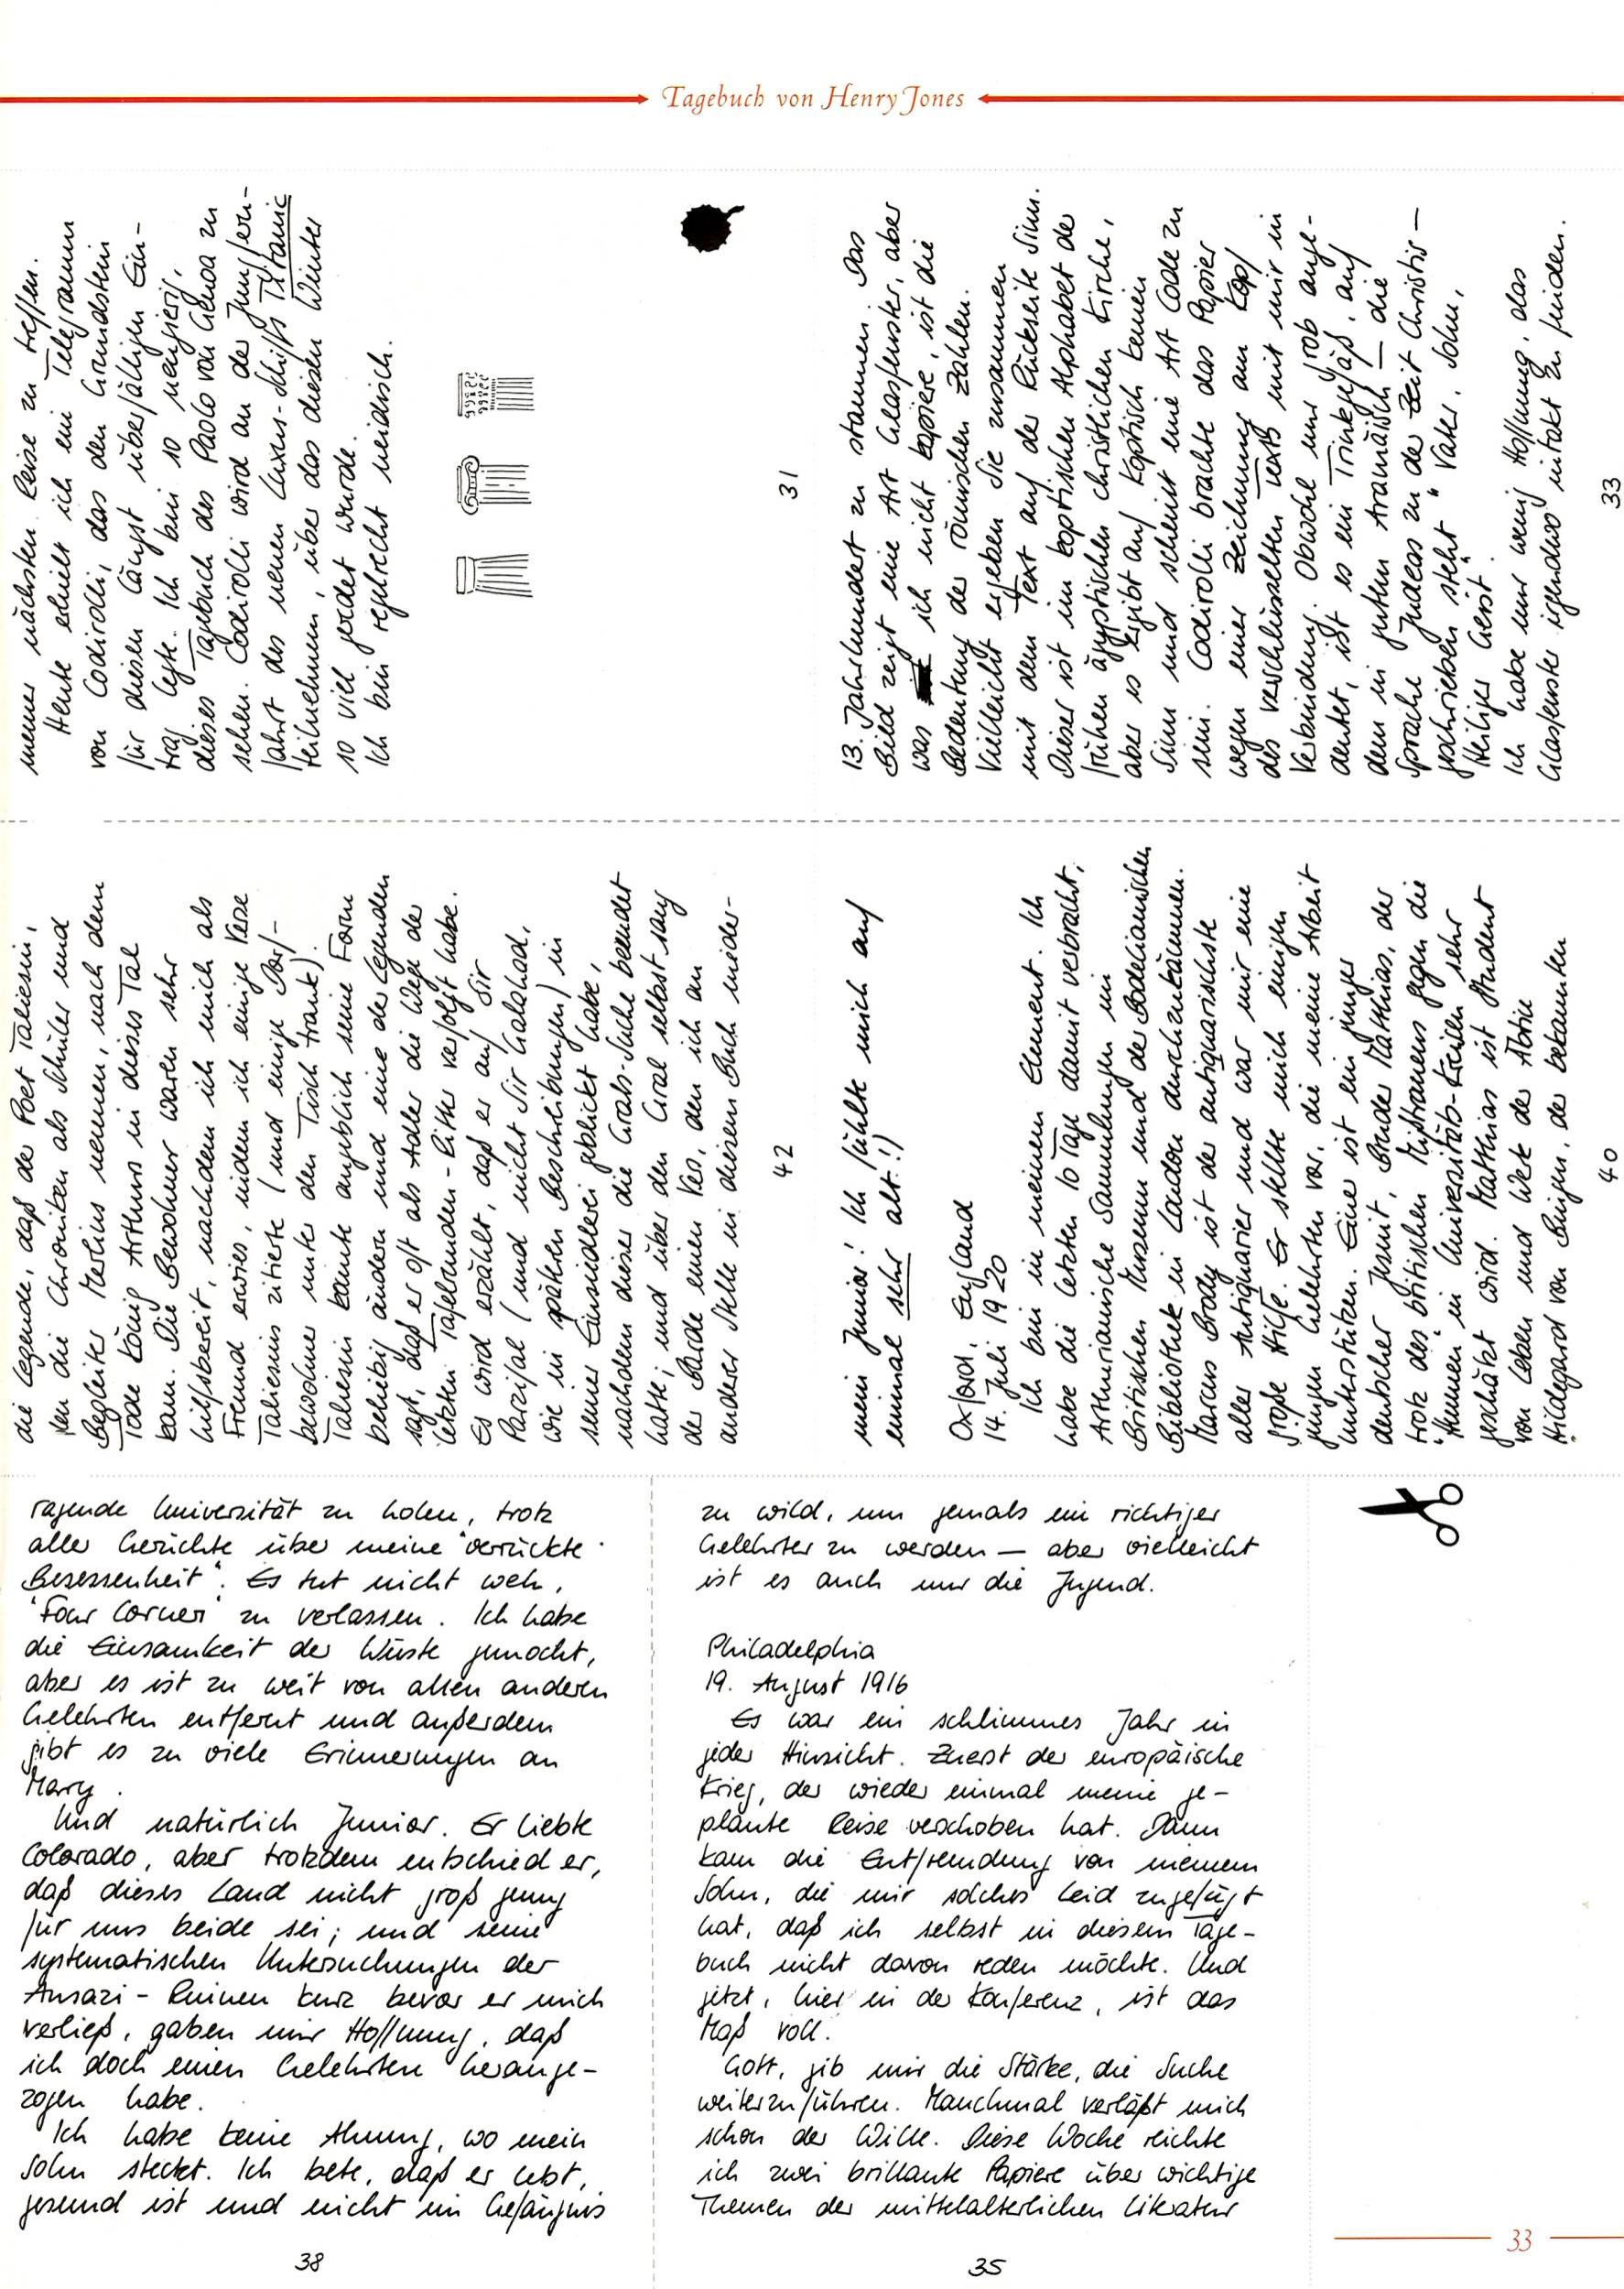 Tagebuch von Henry Jones
meiner nächsten Reise zu treffen.
Heute erhielt ich ein Telegramm
von Codirolli, das den Grundstein
für diesen längst überfälligen Ein-
trag legte. Ich bin so neugierig,
dieses Tagebuch des Paolo von Genoa zu
sehen. Codirolli wird an der Jungfern-
fahrt des neuen Luxus-Schiffs Titanic
teilnehmen, über das diesen Winter
so viel geredet wurde.
Ich bin regelrecht neidisch.
31
13. Jahrhundert zu stammen. Das
Bild zeigt eine Art Glasfenster, aber
was ich nicht kapiere, ist die
Bedeutung der römischen Zahlen.
Vielleicht ergeben sie zusammen
mit dem Text auf der Rückseite Sinn.
Dieser ist im koptischen Alphabet der
frühen ägyptischen christlichen Kirche,
aber es ergibt auf Koptisch keinen
Sinn und scheint eine Art Code zu
sein. Codirolli brachte das Papier
wegen einer Zeichnung am Kopf
des verschlüsselten Texts mit mir in
Verbindung. Obwohl nur grob ange-
deutet, ist es ein Trinkgefäß, auf
dem in gutem Aramäisch — die
Sprache Judeas zu der Zeit Christis —
geschrieben steht "Vater, Sohn,
Heiliger Geist".
Ich habe nur wenig Hoffnung, das
Glasfenster irgendwo intakt zu finden.
33
die Legende, daß der Poet Taliesin,
den die Chroniken als Schüler und
Begleiter Merlins nennen, nach dem
Tode König Arthurs in dieses Tal
kam. Die Bewohner waren sehr
hilfsbereit, nachdem ich mich als
Freund erwies, indem ich einige Verse
Taliesins zitierte (und einige Dorf-
bewohner unter den Tisch trank).
Taliesin konnte angeblich seine Form
beliebig ändern und eine der Legenden
sagt, daß er oft als Adler die Wege der
letzten Tafelrunden-Ritter verfolgt habe.
Es wird erzählt, daß er auf Sir
Parzifal (und nicht Sir Galahad,
wie in späteren Beschreibungen) in
seiner Einsiedlerei geblickt habe,
nachdem dieser die Grals-Suche beendet
hatte; und über den Gral selbst sang
der Barde einen Vers, den ich an
anderer Stelle in diesem Buch nieder-
42
mein Junior! Ich fühlte mich auf
einmal sehr alt!)
Oxford, England
14. Juli 1920
Ich bin in meinem Element. Ich
habe die letzten 10 Tage damit verbracht,
Arthurianische Sammlungen im
Britischen Museum und der Bodelianischen
Bibliothek in London durchzukämmen.
Marcus Brody ist der antiquarischste
aller Antiquarier und war mir eine
große Hilfe. Er stellte mich einigen
jungen Gelehrten vor, die meine Arbeit
unterstützen. Einer ist ein junger
deutscher Jesuit, Bruder Matthias, der
trotz des britischen Mißtrauens gegen die
"Hunnen" in Universitäts-Kreisen sehr
geschätzt wird. Matthias ist Student
von Leben und Werk der Äbtin
Hildegard von Bingen, der bekannten
40
ragende Universität zu holen, trotz
aller Gerüchte über meine "verrückte
Besessenheit". Es tut nicht weh,
"Four Corners" zu verlassen. Ich habe
die Einsamkeit der Wüste gemocht,
aber es ist zu weit von allen anderen
Gelehrten entfernt und außerdem
gibt es zu viele Erinnerungen an
Mary.
Und natürlich Junior. Er liebte
Colorado, aber trotzdem entschied er,
daß dieses Land nicht groß genug
für uns beide sei; und seine
systematischen Untersuchungen der
Ansazi-Ruinen kurz bevor er mich
verließ, gaben mir Hoffnung, daß
ich doch einen Gelehrten herange-
zogen habe.
Ich habe keine Ahnung, wo mein
Sohn steckt. Ich bete, daß er lebt,
gesund ist und nicht im Gefängnis
38
zu wild, um jemals ein richtiger
Gelehrter zu werden — aber vielleicht
ist es auch nur die Jugend.
Philadelphia
19. August 1916
Es war ein schlimmes Jahr in
jeder Hinsicht. Zuerst der europäische
Krieg, der wieder einmal meine ge-
plante Reise verschoben hat. Dann
kam die Entfremdung von meinem
Sohn, die mir solches Leid zugefügt
hat, daß ich selbst in diesem Tage-
buch nicht davon reden möchte. Und
jetzt, hier in der Konferenz, ist das
Maß voll.
Gott, gib mir die Stärke, die Suche
weiterzuführen. Manchmal verläßt mich
schon der Wille. Diese Woche reichte
ich zwei brillante Papiere über wichtige
Themen der mittelalterlichen Literatur
35
33